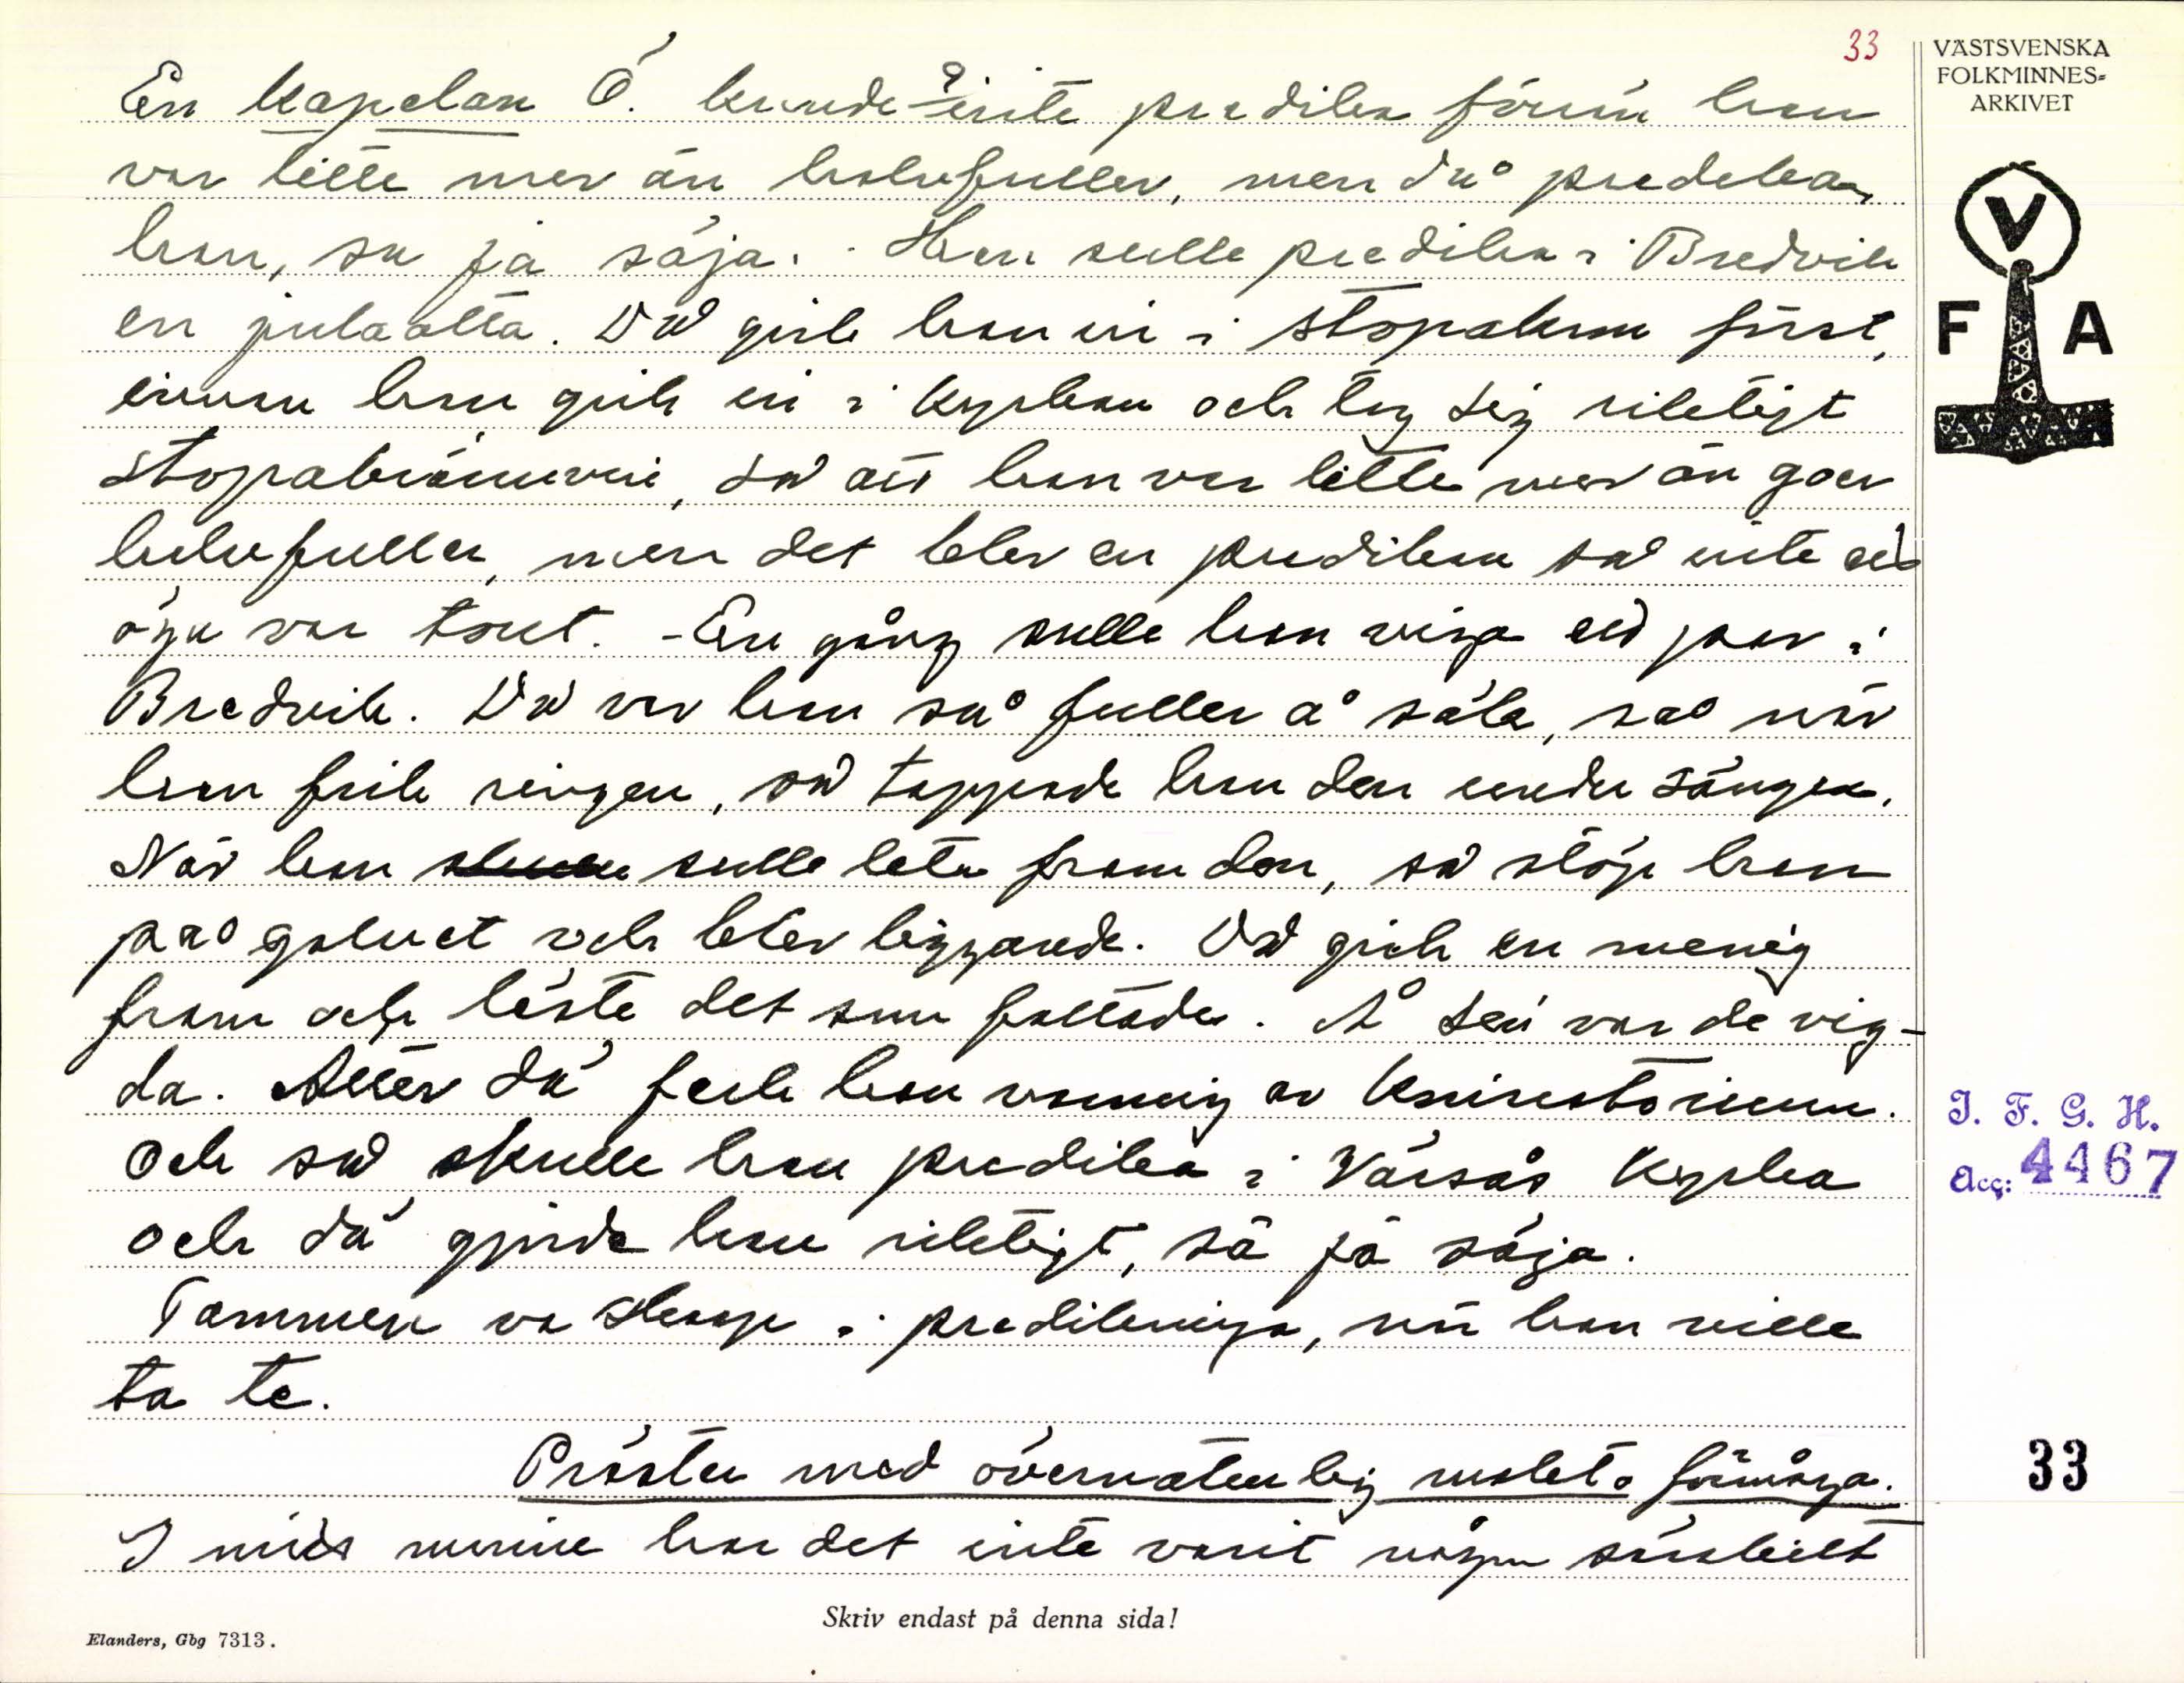 33
VÄSTSVENSKA
FOLKMINNES-
ARKIVET
En kapelan Ö. kunde inte predika förrn han
var litte mer än halvfuller, men då predeka
han, sa ja säja. Han sulle predika i Bredvik
en julaotta. Då gick han in i stopakam först,
innan han gick in i kyrkan och tog sig riktigt
stopabrännvin, så att han var litte mer än goer
halvfuller, men det blev en predikan så inte ed
öga var tort. - En gång sulle han viga ed par i
Bredvik. Då var han så fuller å säla, så när
han fick ringen, så tappade han den under sängen.
När han sulle leta fram den, så stöp han
på golvet och blev liggande. Då gick en menig
fram och läste det som fattades. Å sen var de vig-
da. Atter dä feck han varning av Konsistorium.
Och så skulle han predika i Värsås kyrka
och dä gjorde han riktigt, sä ja säja.
Tammen va skarp i predikninga, när han ville
ta te.
Präster med övernaturlig makt o förmåga.
I mitt minne har det inte varit någon särskilt
V
F A
I. F. G. H.
Acc: 4467
33
Skriv endast på denna sida!
Elanders, Gbg 7313.